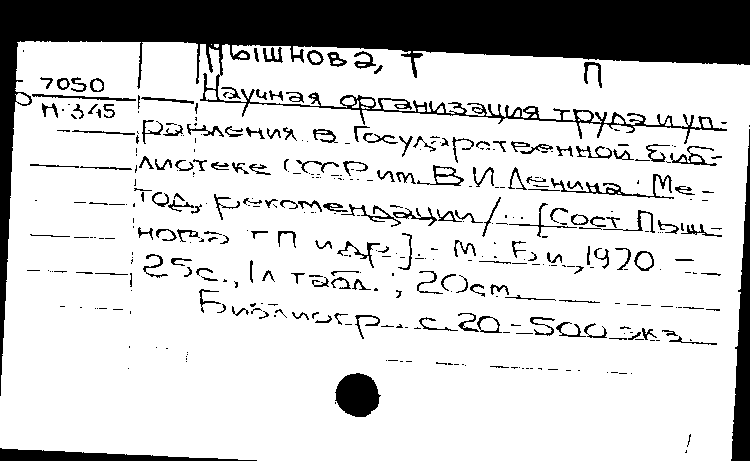 Пышнова, Т П
Б 7050
Н-345
Научная организация труда и уп-
равления в Государственной биб-
лиотеке СССР им. В И Ленина : Ме-
тод. рекомендации / ... [Сост Пыш-
нова Т П и др]. - М : Б и, 1970 -
25с., 1л табл. ; 20см.
Библиогр. с. 20 - 500 экз